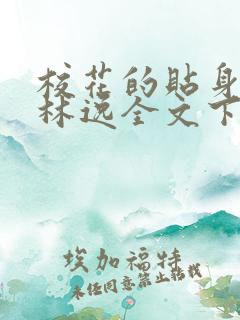 校花的贴身
林逸全文下
埃加福特
未经同意禁止转载